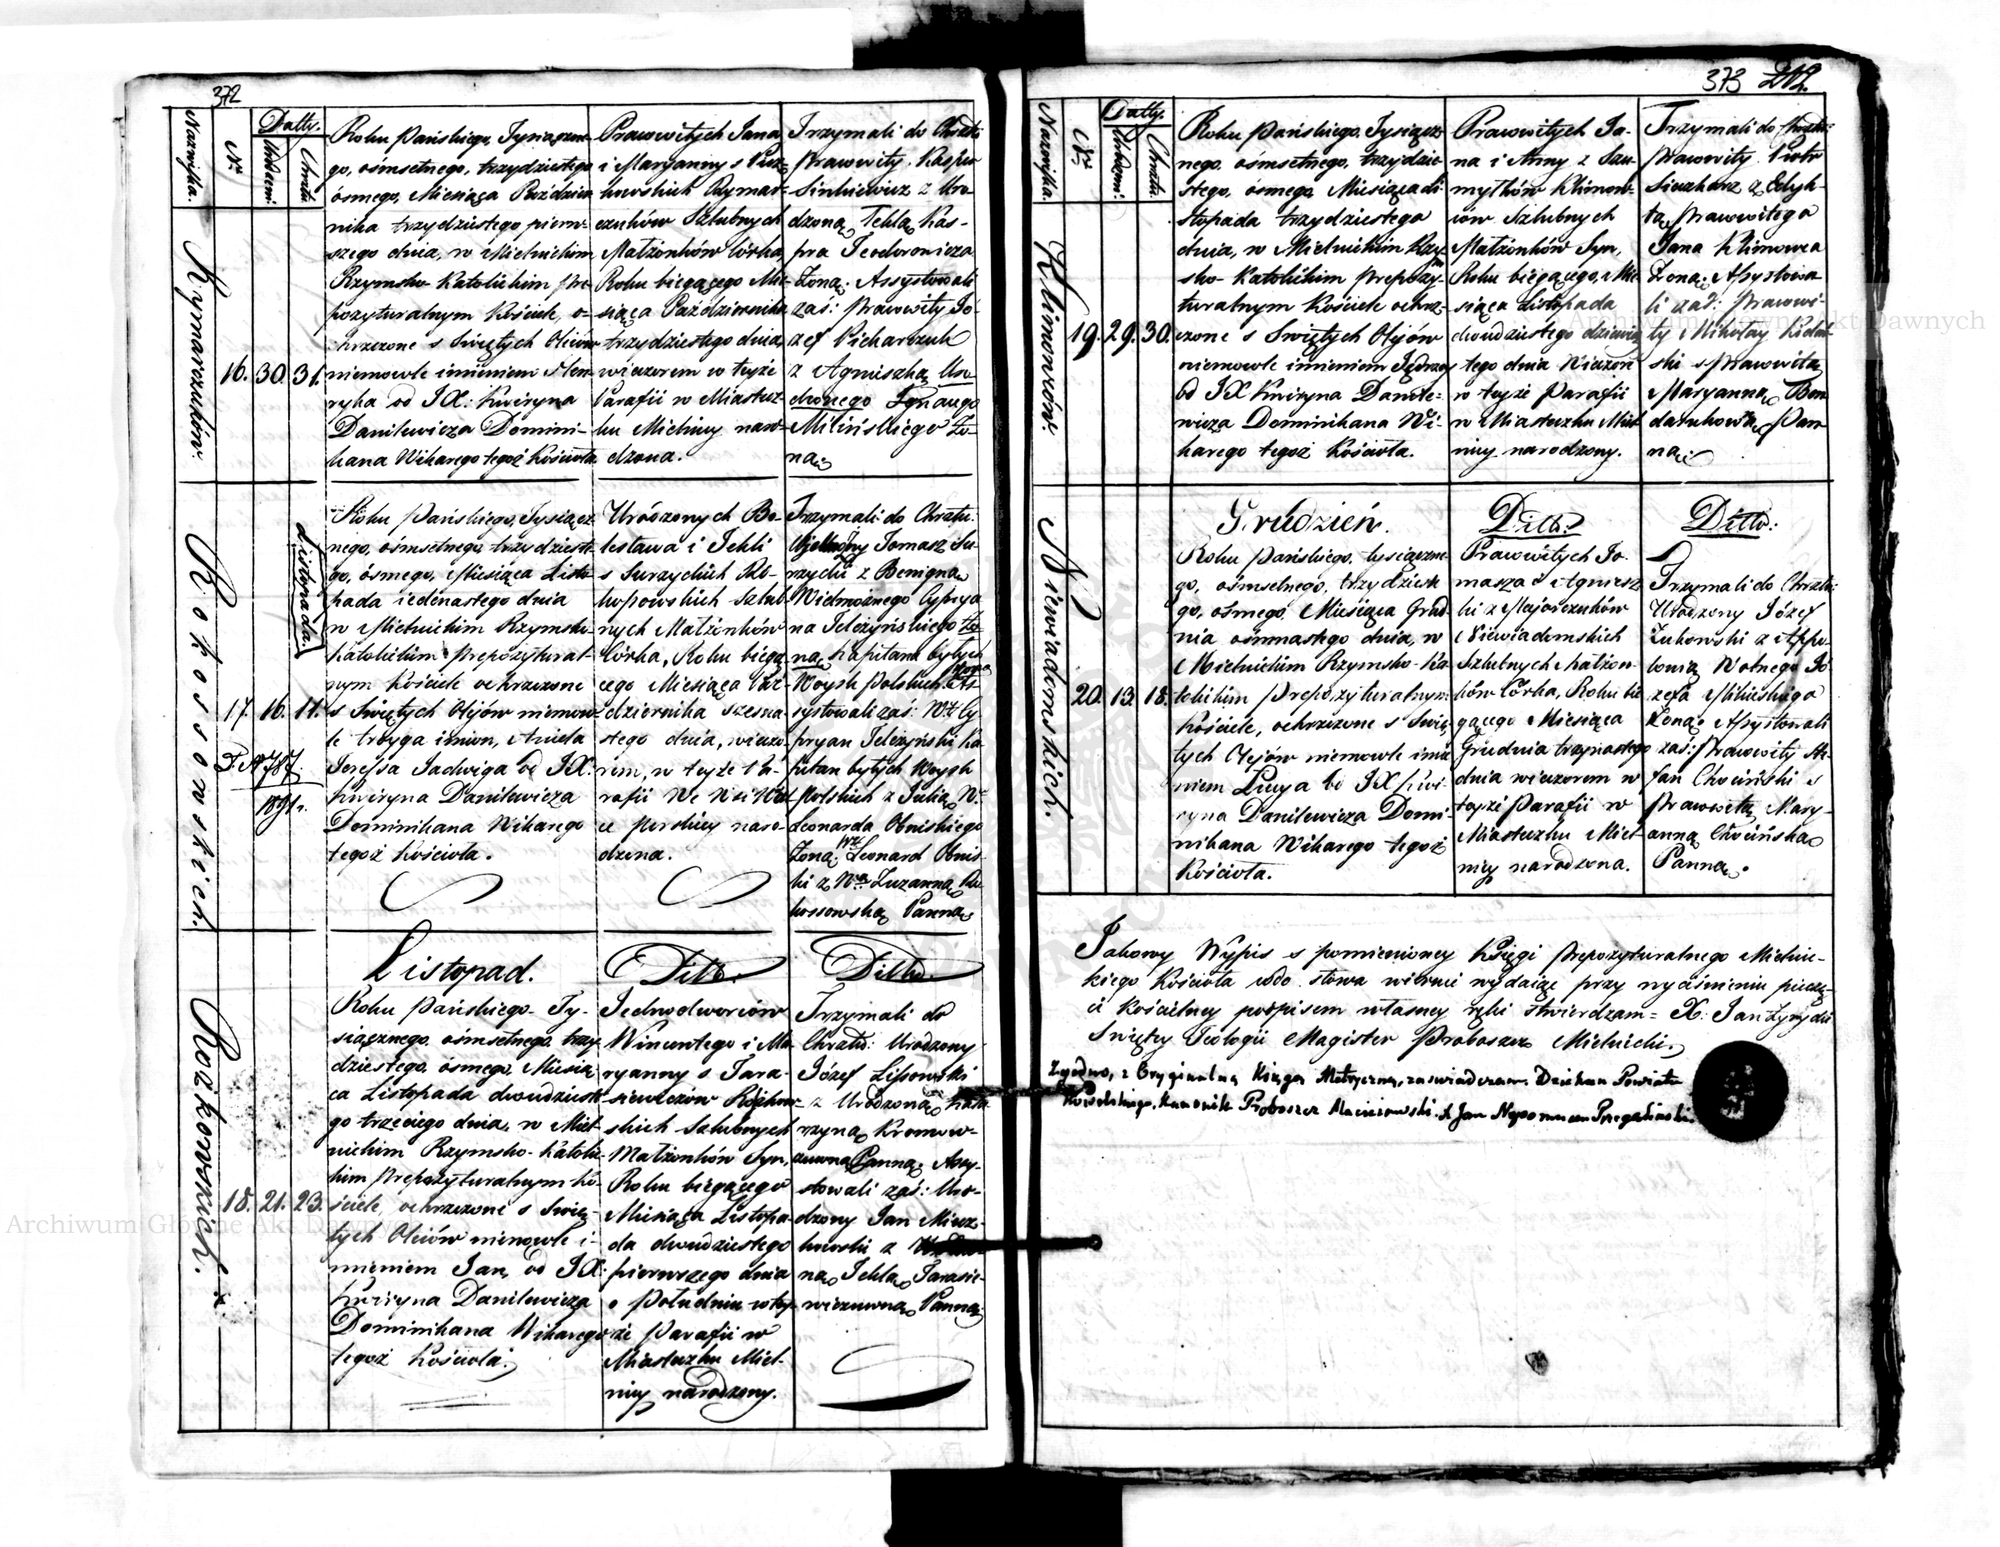 372
Nazwiska.
Nr
Datty.
Urodzeni.
Chrztu.
Rymarczuków.
16. 30. 31.
Roku Pańskiego, Tysiączne-
go, ośmsetnego, trzydziestego
ósmego, Miesiąca Paździer
nika trzydziestego pierw-
szego dnia, w Mielnickim
Rzymsko-Katolickim Pre
pozyturalnym Kościele, o-
chrzczone s Swiętych Oleiów
niemowle imieniem Hen
ryka od JX: Kwiryna
Danilewicza Domini-
kana Wikarego tegoż Kościoła
Prawowitych Jana
i Maryanny s
Rymar-
czuków Szlubnych
Małżonków Córka,
Roku bieżącego Mie-
siąca Października
trzydziestego dnia
wieczorem w teyże
Parafii w Miastecz
ku Mielnicy naro-
dzona.
Trzymali do Chrztu
Prawowity Kasper
Sinkiewicz z Uro
dzoną Teklą Kas-
pra Teodorowicza
Żoną. Assystowali
zaś: Prawowity Jó-
zef Picharczuk
z Agnieszką Uro
dzonego Ignacego
Milińskiego Żo-
ną.
Kokossowskich.
Listopada.
17. 16. 11.
1891 r.
Roku Pańskiego, Tysiącz
nego, ośmsetnego, trzydzieste
go, ósmego, Miesiąca Listo
pada iedenastego dnia
w Mielnickim Rzymsko-
Katolickim Prepozytural-
nym Kościele ochrzczone
s Swiętych Oleiów niemow-
le troyga imion, Aniela
Teressa Jadwiga od JX:
Kwiryna Danilewicza
Dominikana Wikarego
tegoż Kościoła.
Urodzonych Bo-
lesława i Tekli
s Surzyckich Ko-
Szlub-
nych Małżonków
Córka, Roku bieżą
cego Miesiąca Paź-
dziernika szesna-
stego dnia, wieczo-
rem, w teyże Pa-
rafii We Wsi
naro-
dzona.
Trzymali do Chrztu.
Tomasz Su-
rzycki z Benigną
Wielmożnego Cyprya
na Jeleżyńskiego Żo-
ną, Kapitana byłych
Woysk Polskich As-
systowali zaś: WJ Cy-
pryan Jeleżyński Ka
pitan byłych Woysk
Polskich z Julią
Leonarda Obniskiego
Żoną, Leonard Obnis-
ki z Zuzanną Ko-
kossowską Panną.
Rożkowskich.
18. 21. 23.
Listopad.
Roku Pańskiego. Ty-
siącznego, ośmsetnego, trzy
dziestego, ósmego, Miesią
ca Listopada dwudzieste
go trzeciego dnia, w Miel-
nickim Rzymsko-Katolic
kim Prepozyturalnym Ko-
ściele, ochrzczone s Swię-
tych Oleiów niemowle i-
mieniem Jan, od JX:
Kwiryna Danilewicza
Dominikana Wikarego
tegoż Kościoła.
Ditto.
Jednodworców
Wincentego i Ma
ryanny s Tara-
siewiczów Rożkow-
skich Szlubnych
Małżonków Syn,
Roku bieżącego
Miesiąca Listopa-
da dwudziestego
pierwszego dnia
o Południu w tey-
że Parafii w
Miasteczku Miel-
nicy narodzony.
Ditto.
Trzymali do
Chrztu: Urodzony
Józef Lissowski
z Urodzoną Kata
rzyną
Panną. Assy-
stowali zaś: Uro-
dzony Jan
z
ną Teklą Tarasie-
wiczuwną Panną.
373 212.
Nazwiska.
Nr
Datty.
Urodzeni.
Chrztu.
Klimowiów.
19. 29. 30.
Roku Pańskiego, Tysiącz
nego, ośmsetnego, trzydzie
stego, ósmego Miesiąca Li-
stopada trzydziestego
dnia, w Mielnickim Rzym
sko-Katolickim Prepozy-
turalnym Kościele ochrz-
czone s Swiętych Oleiów
niemowle imieniem Jędrzey
od JX Kwiryna Danile-
wicza Dominikana Wi-
karego tegoż Kościoła.
Prawowitych Ja-
na i Anny z Szu
mytków Klimow-
iów Szlubnych
Małżonków Syn,
Roku bieżącego, Mie-
siąca Listopada
dwudziestego dziewią
tego dnia Wieczorem
w teyże Parafii
w Miasteczku Miel
nicy narodzony.
Trzymali do Chrztu:
Prawowity Piotr
z Edyk-
tą Prawowitego
Jana Klimowca
Żoną. Assystowa
li zaś: Prawowi-
ty Mikołay
ski s Prawowitą
Maryanną Bon
Pan
ną.
Niewiadomskich.
20. 13. 18.
Grudzień.
Roku Pańskiego, tysiączne
go, ośmsetnego, trzydzieste
go, ósmego, Miesiąca Grud
nia ośmnastego dnia, w
Mielnickim Rzymsko-Ka
tolickim Prepozyturalnym
Kościele, ochrzczone s Swię
tych Oleiów niemowle imie
niem Lucya od JX Kwi-
ryna Danilewicza Domi-
nikana Wikarego tegoż
Kościoła.
Ditto.
Prawowitych To-
masza i Agniesz
ki z Majorczuków
Niewiadomskich
Szlubnych Małżon-
ków Córka, Roku bie
żącego Miesiąca
Grudnia trzynastego
dnia wieczorem w
teyże Parafii w
Miasteczku Miel-
nicy narodzona.
Ditto.
Trzymali do Chrztu:
Urodzony Józef
Żukowski z Appo-
lonią Wolnego Jó-
zefa
Żoną. Assystowali
zaś: Prawowity Ste
fan Chociński s
Prawowitą Mary-
anną Chocińską
Panną.
Jakowy Wypis s pomienioney Księgi Prepozyturalnego Mielnic-
kiego Kościoła słowo do słowa wiernie wydaiąc przy wyciśnieniu pieczę-
ci Kościelney podpisem własney ręki stwierdzam = X. Jan
Swiętey Teologii Magister Proboszcz Mielnicki.
Zgodno, z Oryginalną Księgą Metryczną, zaswiadczam. Dziekan Powiatu
Kowelskiego, Kanonik Proboszcz Maciejowski. X Jan Nepomucen
Archiwum Główne Akt Dawnych
Archiwum Główne Akt Dawnych